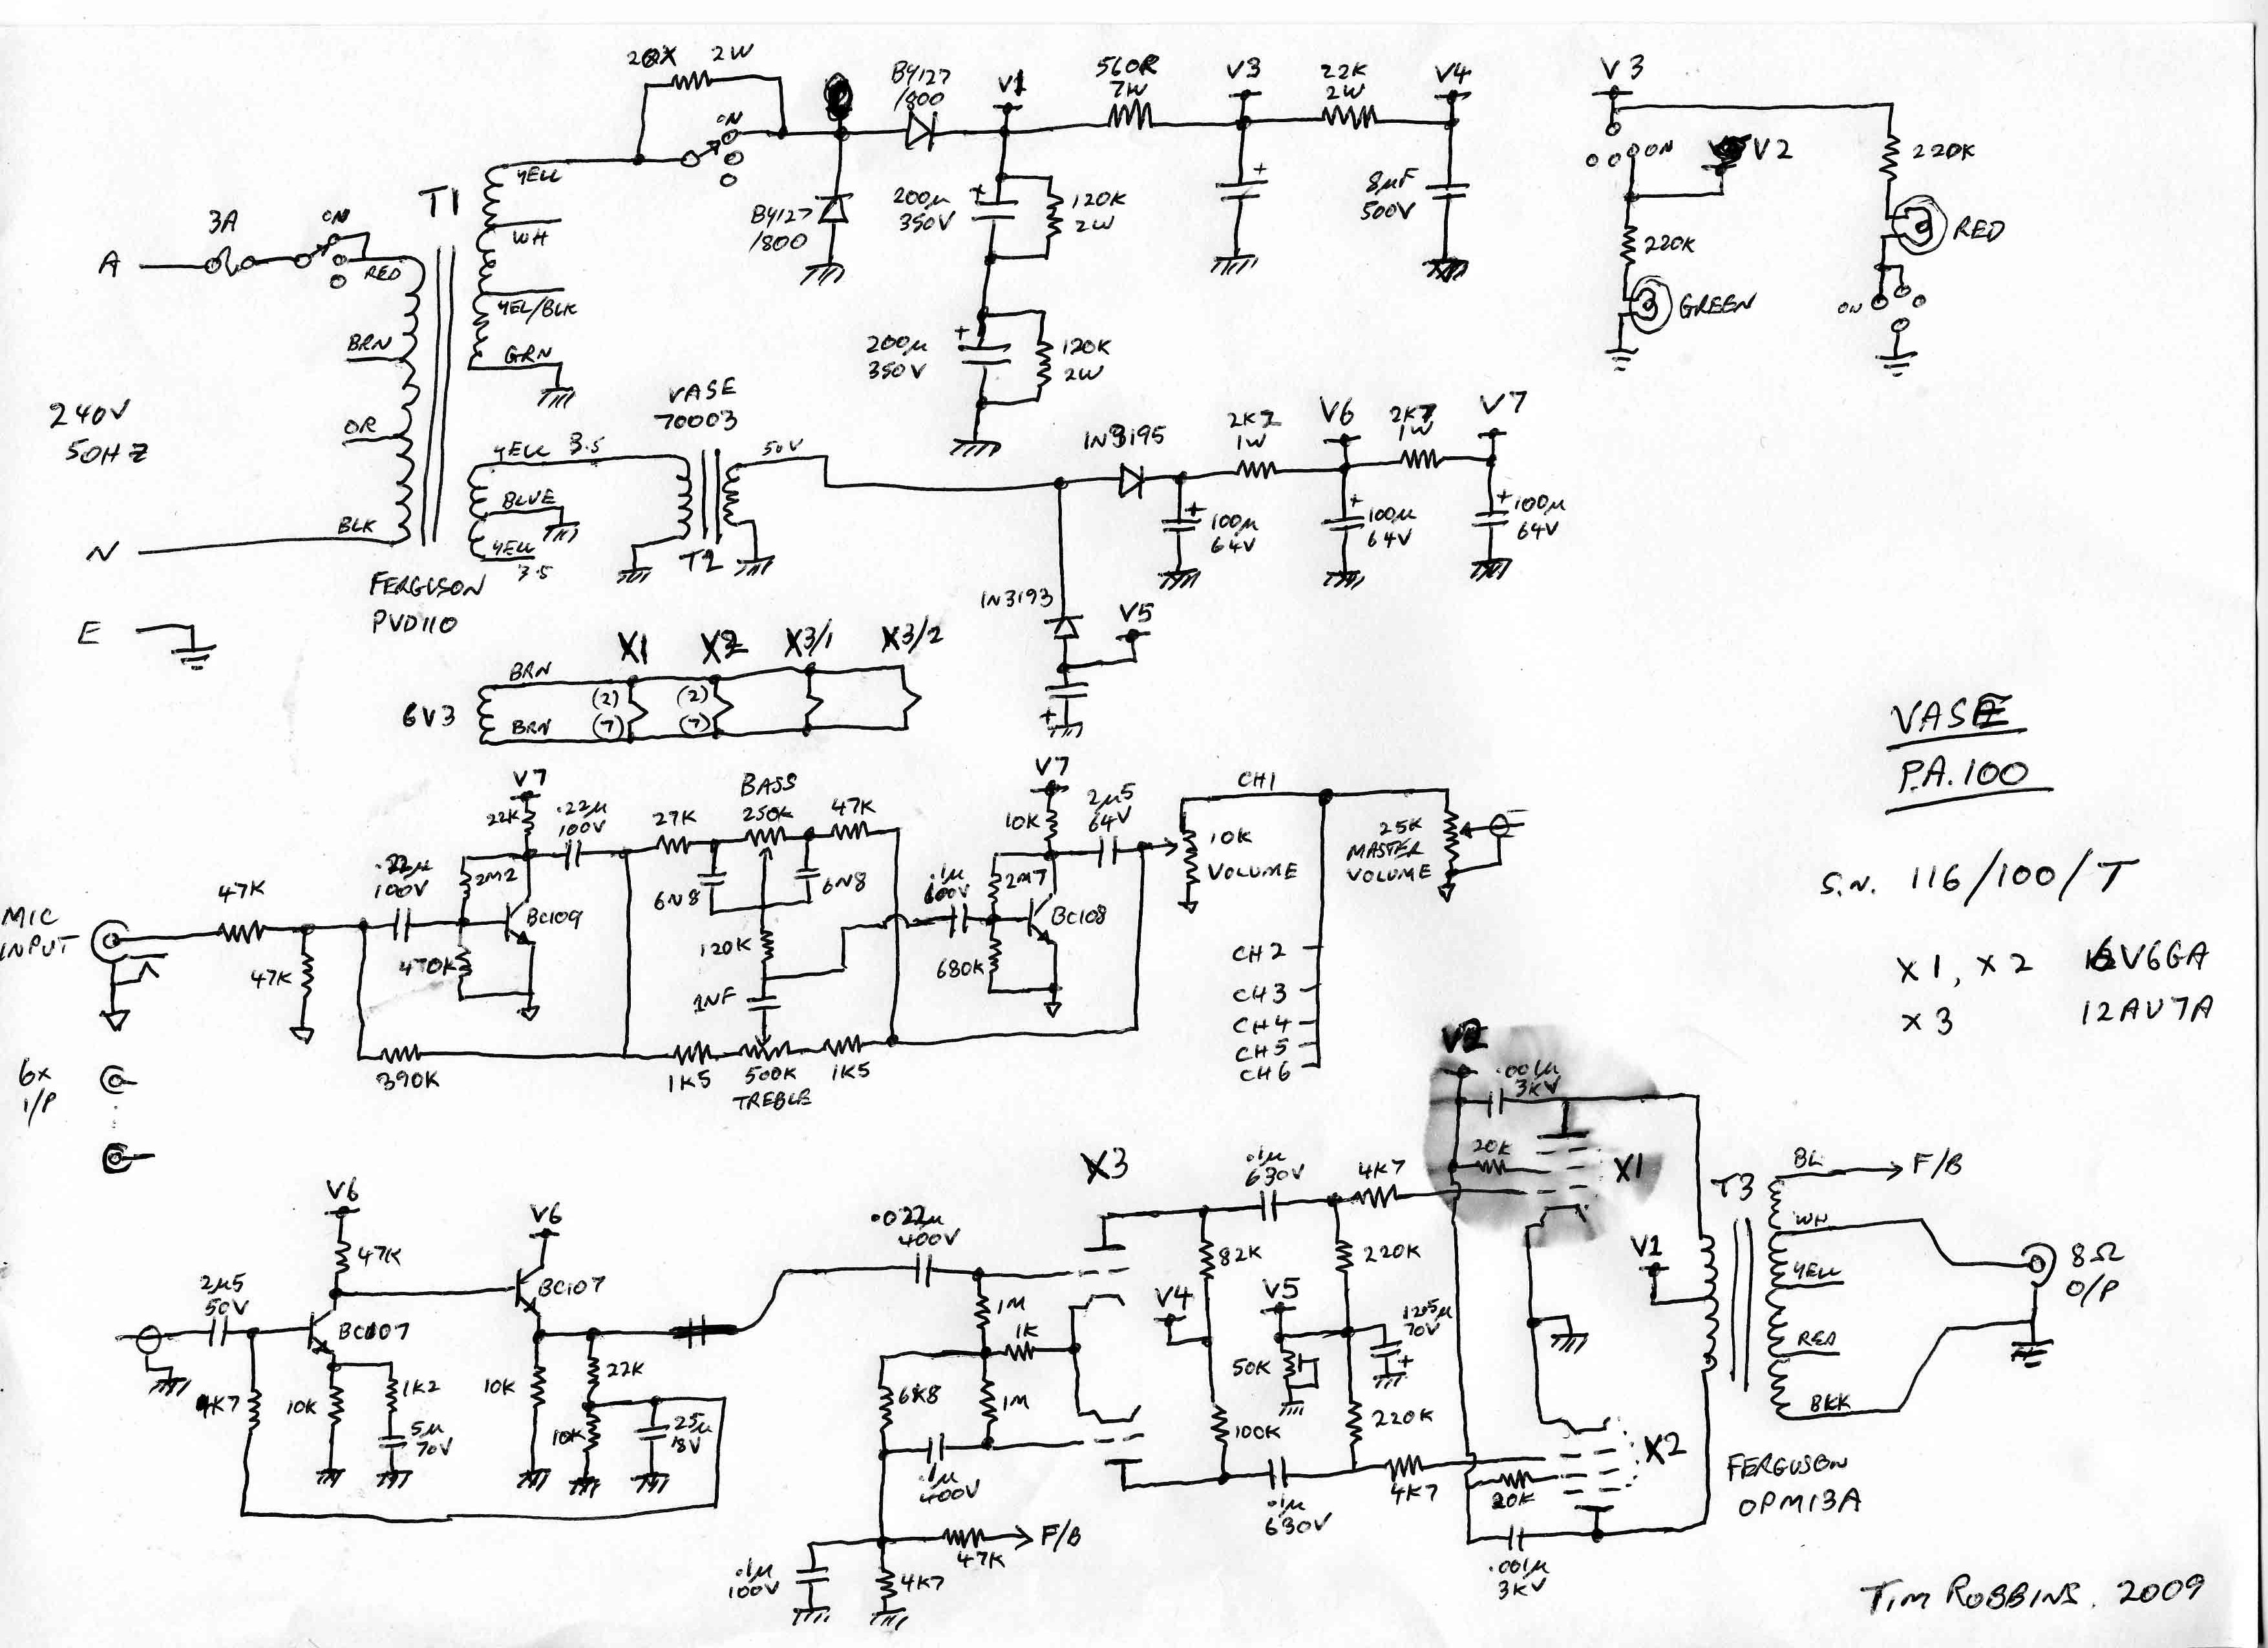 2W
BY127
/800
V1
560R
7W
V3
22K
2W
V4
V3
ON
V2
220K
RED
220K
GREEN
ON
YELL
T1
WH
YEL/BLK
GRN
A
3A
ON
RED
BRN
OR
BLK
240V
50HZ
N
E
ON
BY127
/800
200µ
350V
120K
2W
200µ
350V
120K
2W
8µF
500V
VASE
70003
YELL 3.5
BLUE
YELL
3.5
50V
T2
FERGUSON
PVD110
1N3195
2K2
1W
V6
2K7
1W
V7
100µ
64V
100µ
64V
100µ
64V
1N3193
V5
X1
X2
X3/1
X3/2
6V3
BRN
BRN
(2)
(7)
(2)
(7)
VASE
P.A.100
S.N. 116/100/T
X1, X2 6V6GA
X3 12AV7A
MIC
INPUT
47K
47K
.22µ
100V
2M2
470K
V7
22K
.22µ
100V
BC109
27K
BASS
250K
47K
6N8
6N8
120K
1NF
390K
1K5
500K
TREBLE
1K5
.1µ
100V
V7
10K
2M7
680K
BC108
2µ5
64V
CH1
10K
VOLUME
25K
MASTER
VOLUME
CH2
CH3
CH4
CH5
CH6
6x
I/P
V6
47K
2µ5
50V
BC107
4K7
10K
1K2
5µ
70V
V6
BC107
10K
22K
10K
25µ
18V
.022µ
400V
1M
1K
6K8
1M
.1µ
400V
.1µ
100V
4K7
47K
F/B
X3
82K
V4
100K
.1µ
630V
V5
50K
220K
12.5µ
70V
220K
.1µ
630V
4K7
4K7
V2
.001µ
3KV
20K
X1
X2
20K
.001µ
3KV
V1
T3
BL
F/B
WH
YELL
RED
BKK
8Ω
O/P
FERGUSON
OPM13A
TIM ROBBINS. 2009